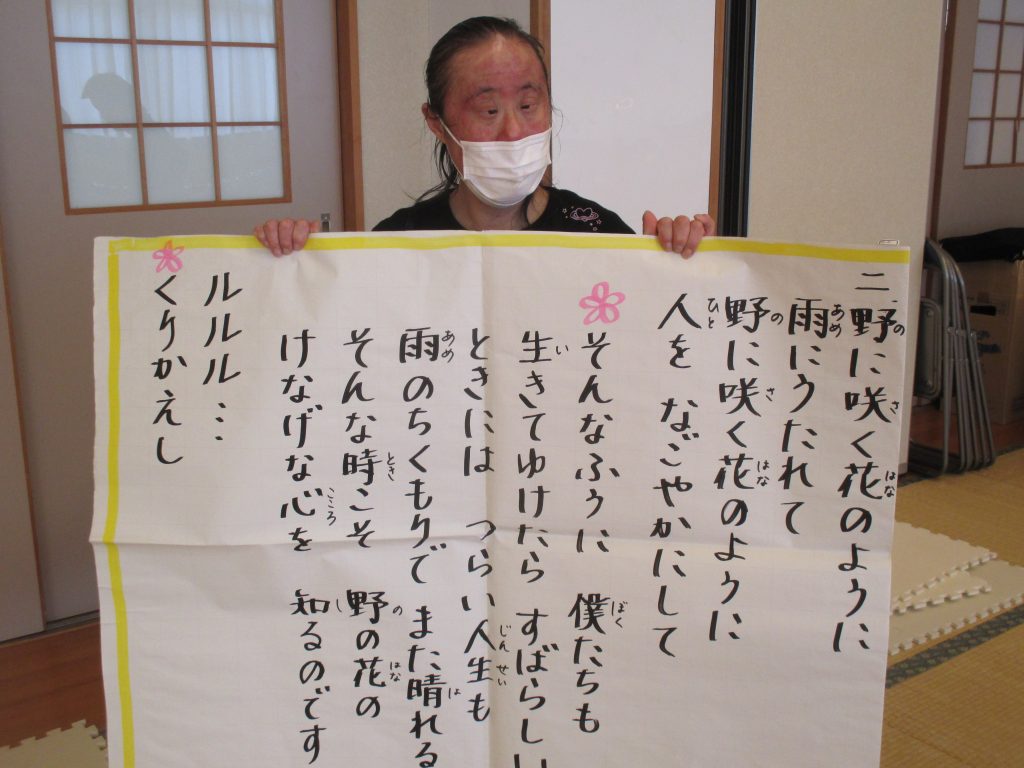 二.野に咲く花のように
雨にうたれて
野に咲く花のように
人を なごやかにして
そんなふうに 僕たちも
生きてゆけたら すばらしい
ときには つらい人生も
雨のちくもりで また晴れる
そんな時こそ 野の花の
けなげな心を 知るのです
ルルル…
くりかえし